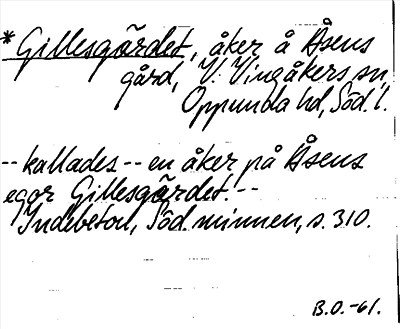 *Gillesgärdet, åker å Åsens
gård, V. Vingåkers sn,
Oppunda hd, Söd. l.
-- kallades -- en åker på Åsens
egor Gillesgärdet. --
Indebetou, Söd. minnen, s. 310.
B.O. -61.